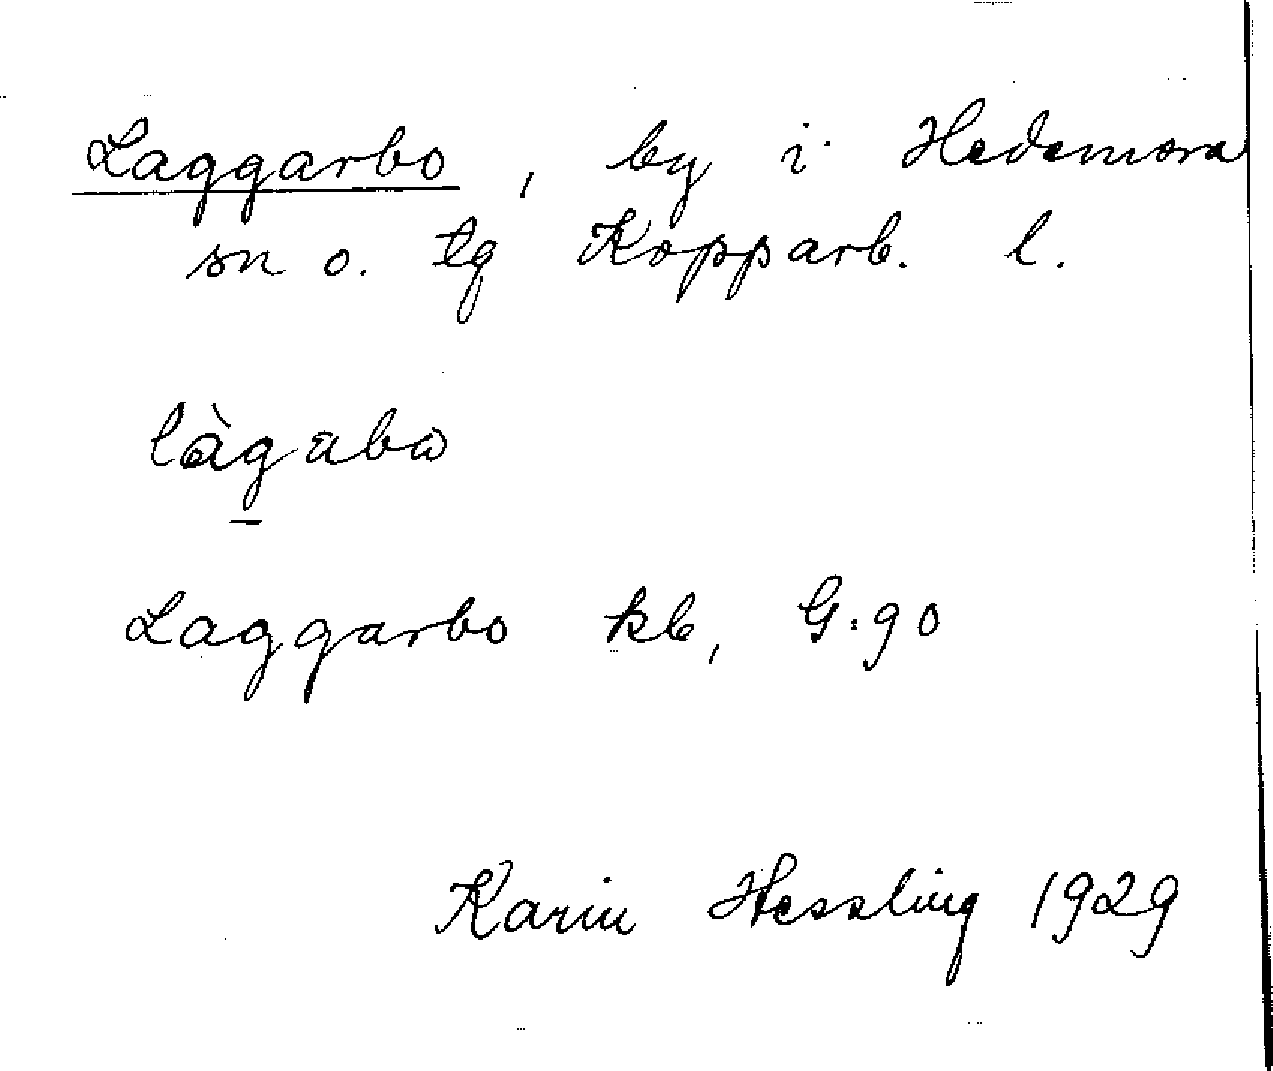 Laggarbo, by i Hedemora
sn o. tg Kopparb. l.
làgabω
Laggarbo kb, G:90
Karin Hessling 1929